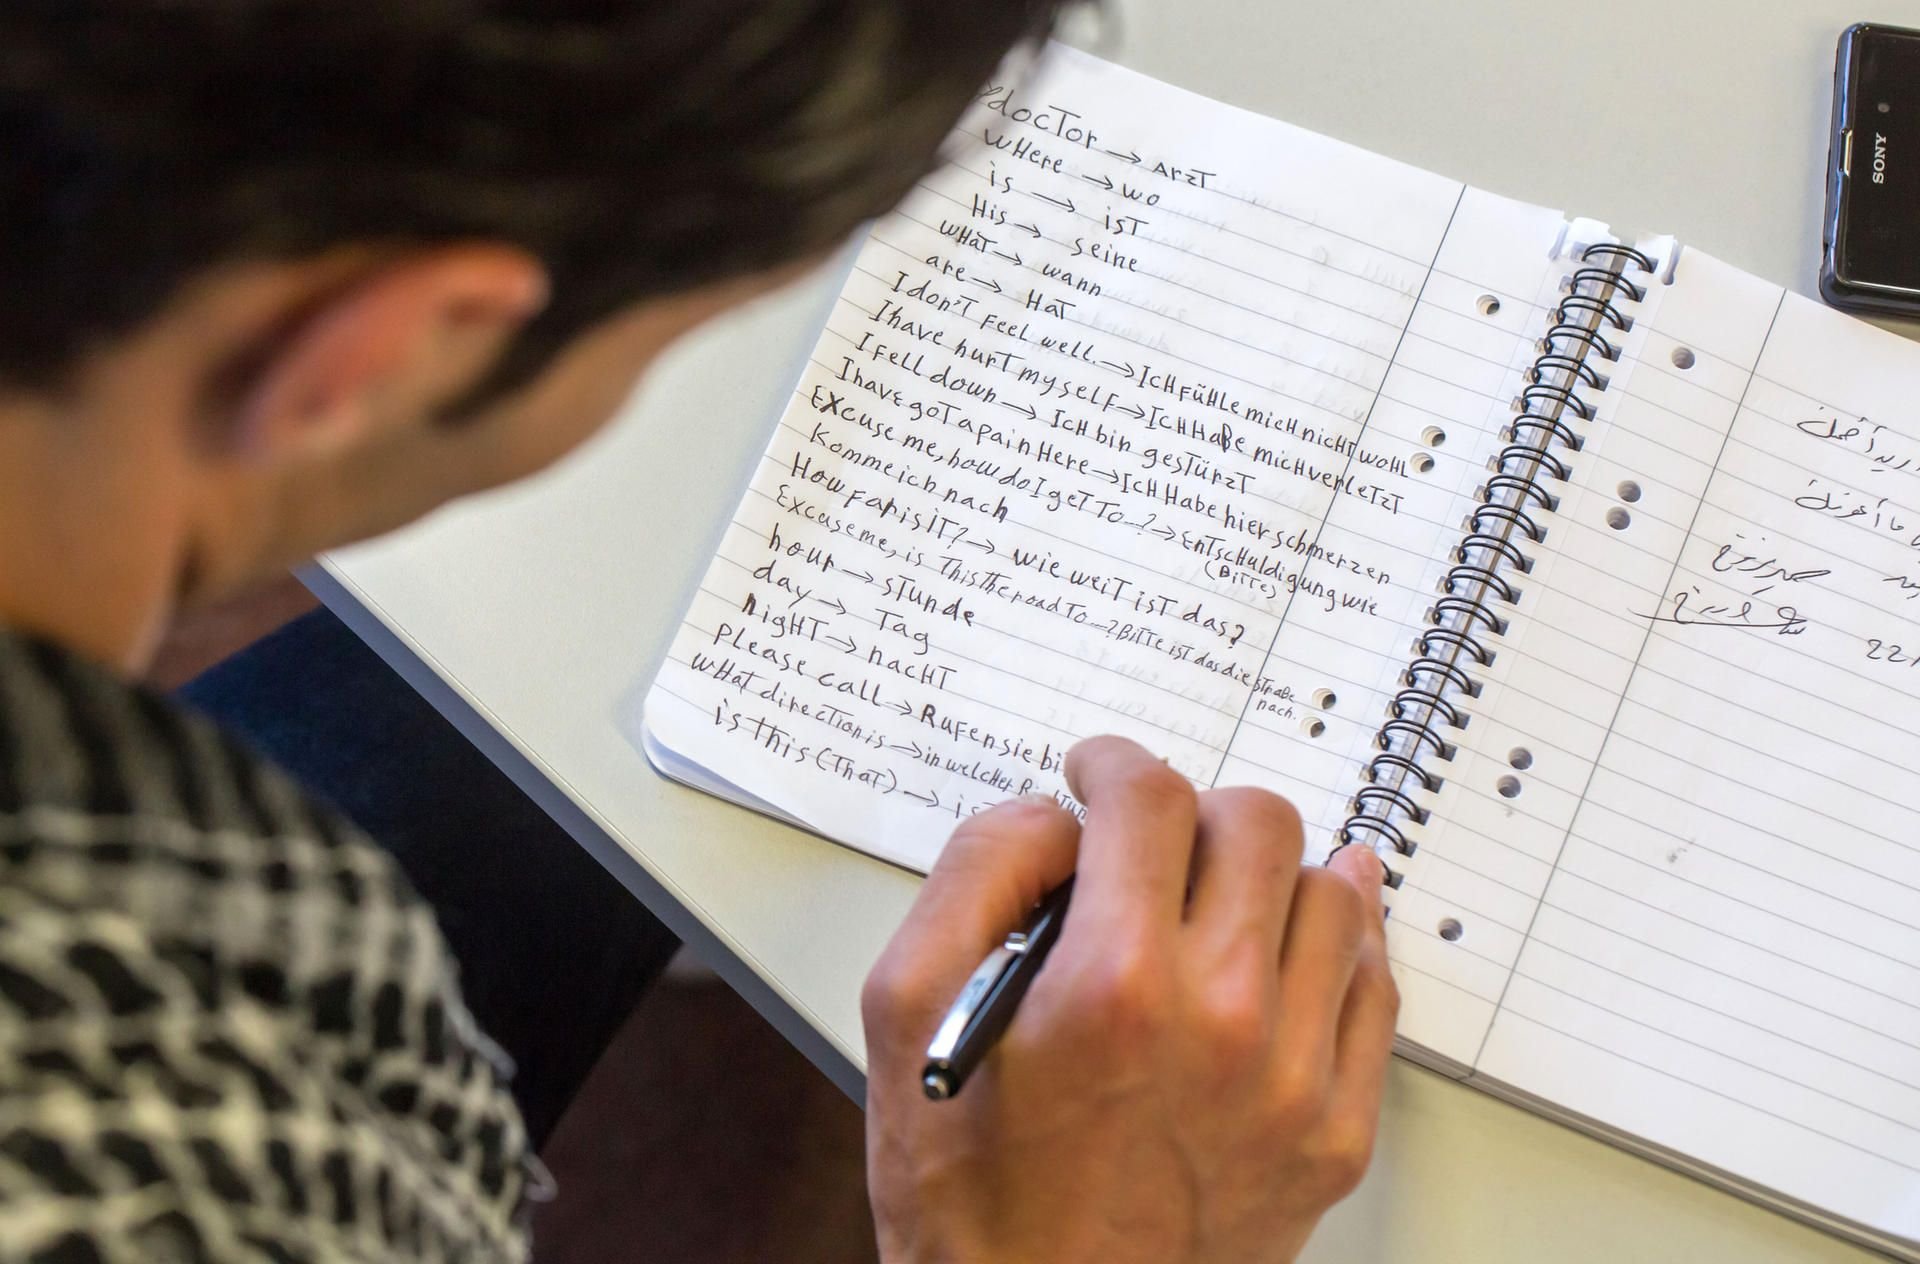 docTor → ArzT
wHere → wo
is → isT
His → seine
wHaT → wann
are → HaT
I don'T Feel well. → IcH FüHLe micH nicHT woHL
I have hurT myself → IcH HaBe micH verleTzT
I Fell down → IcH bin gesTürzT
I have goT a pain Here → IcH Habe hier schmerzen
Excuse me, how do I geT To...? → EnTscHuldigung wie
(BiTTe)
Komme ich nach
How Far is iT? → wie weiT isT das?
Excuse me, is This The road To...? BiTTe isT das die sTraße
nach.
hour → sTunde
day → Tag
nigHT → nacHT
please call → RuFen sie
wHat direcTion is → in welcHer
is this (ThaT) →
SONY
22